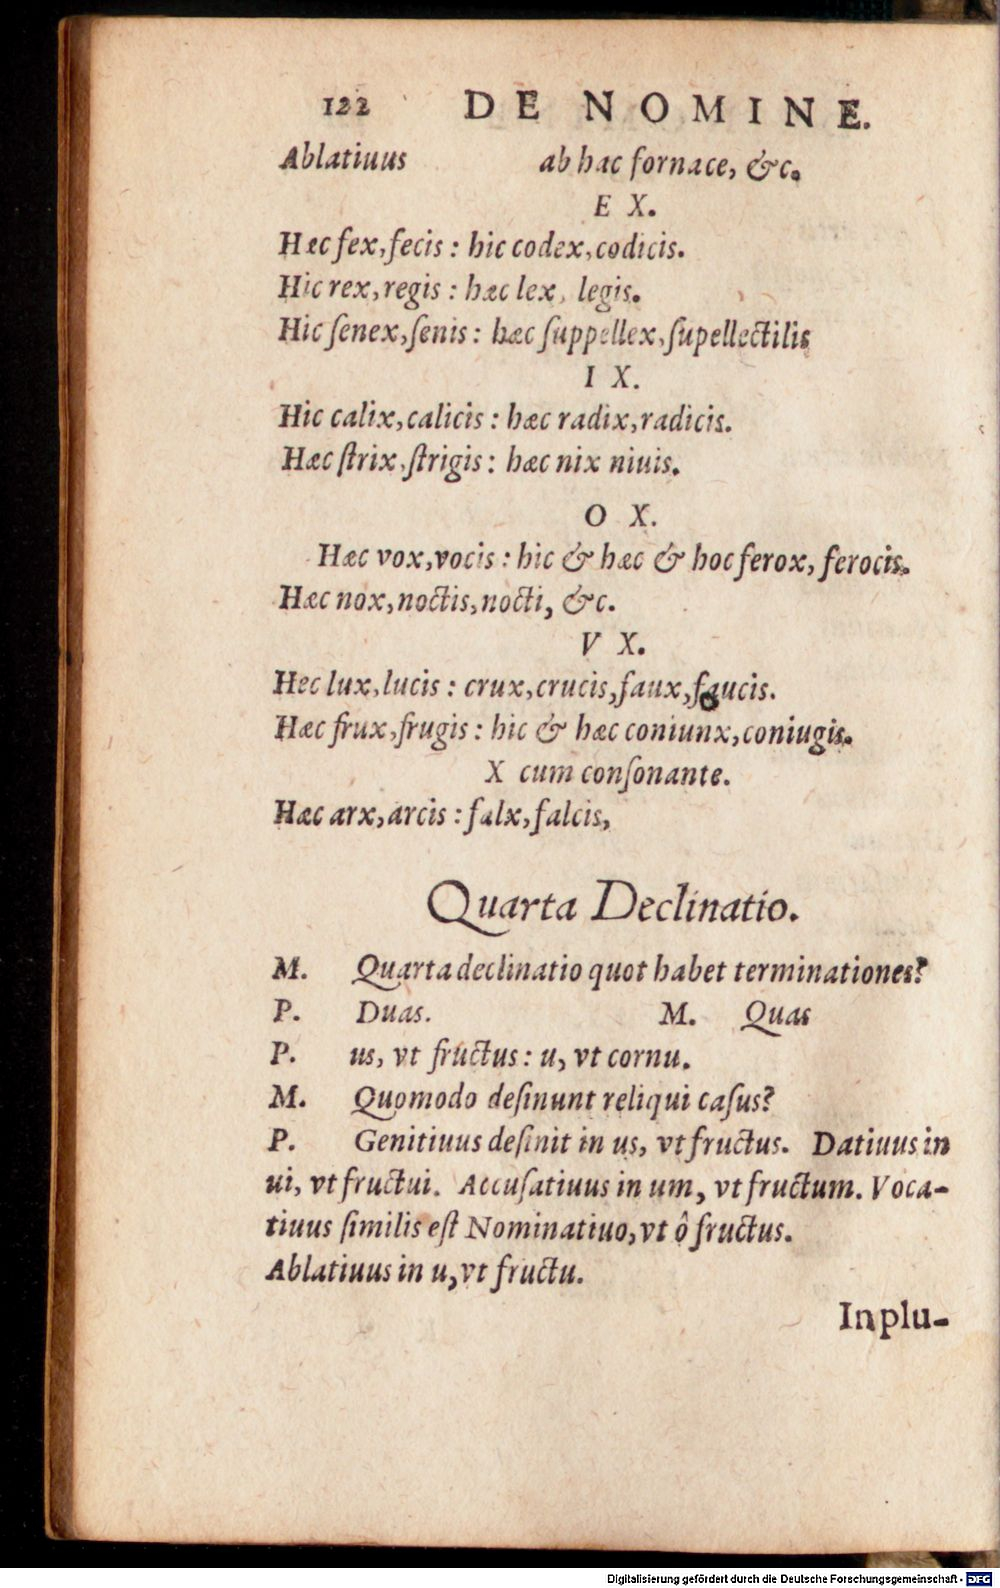 122 DE NOMINE.
Ablatiuus ab hac fornace, &c.
EX.
Hæc fex, fecis: hic codex, codicis.
Hic rex, regis: hæc lex, legis.
Hic ſenex, ſenis: hæc ſuppellex, ſupellectilis
IX.
Hic calix, calicis: hæc radix, radicis.
Hæc ſtrix, ſtrigis: hæc nix niuis.
OX.
Hæc vox, vocis: hic & hæc & hoc ferox, ferocis.
Hæc nox, noctis, nocti, &c.
VX.
Hec lux, lucis: crux, crucis, faux, faucis.
Hæc frux, frugis: hic & hæc coniunx, coniugis.
X cum conſonante.
Hæc arx, arcis: falx, falcis,
Quarta Declinatio.
M. Quarta declinatio quot habet terminationes?
P. Duas. M. Quas
P. us, vt fructus: u, vt cornu.
M. Quomodo deſinunt reliqui caſus?
P. Genitiuus deſinit in us, vt fructus. Datiuus in
ui, vt fructui. Accuſatiuus in um, vt fructum. Voca-
tiuus ſimilis eſt Nominatiuo, vt ô fructus.
Ablatiuus in u, vt fructu.
In plu-
Digitalisierung gefördert durch die Deutsche Forschungsgemeinschaft - DFG